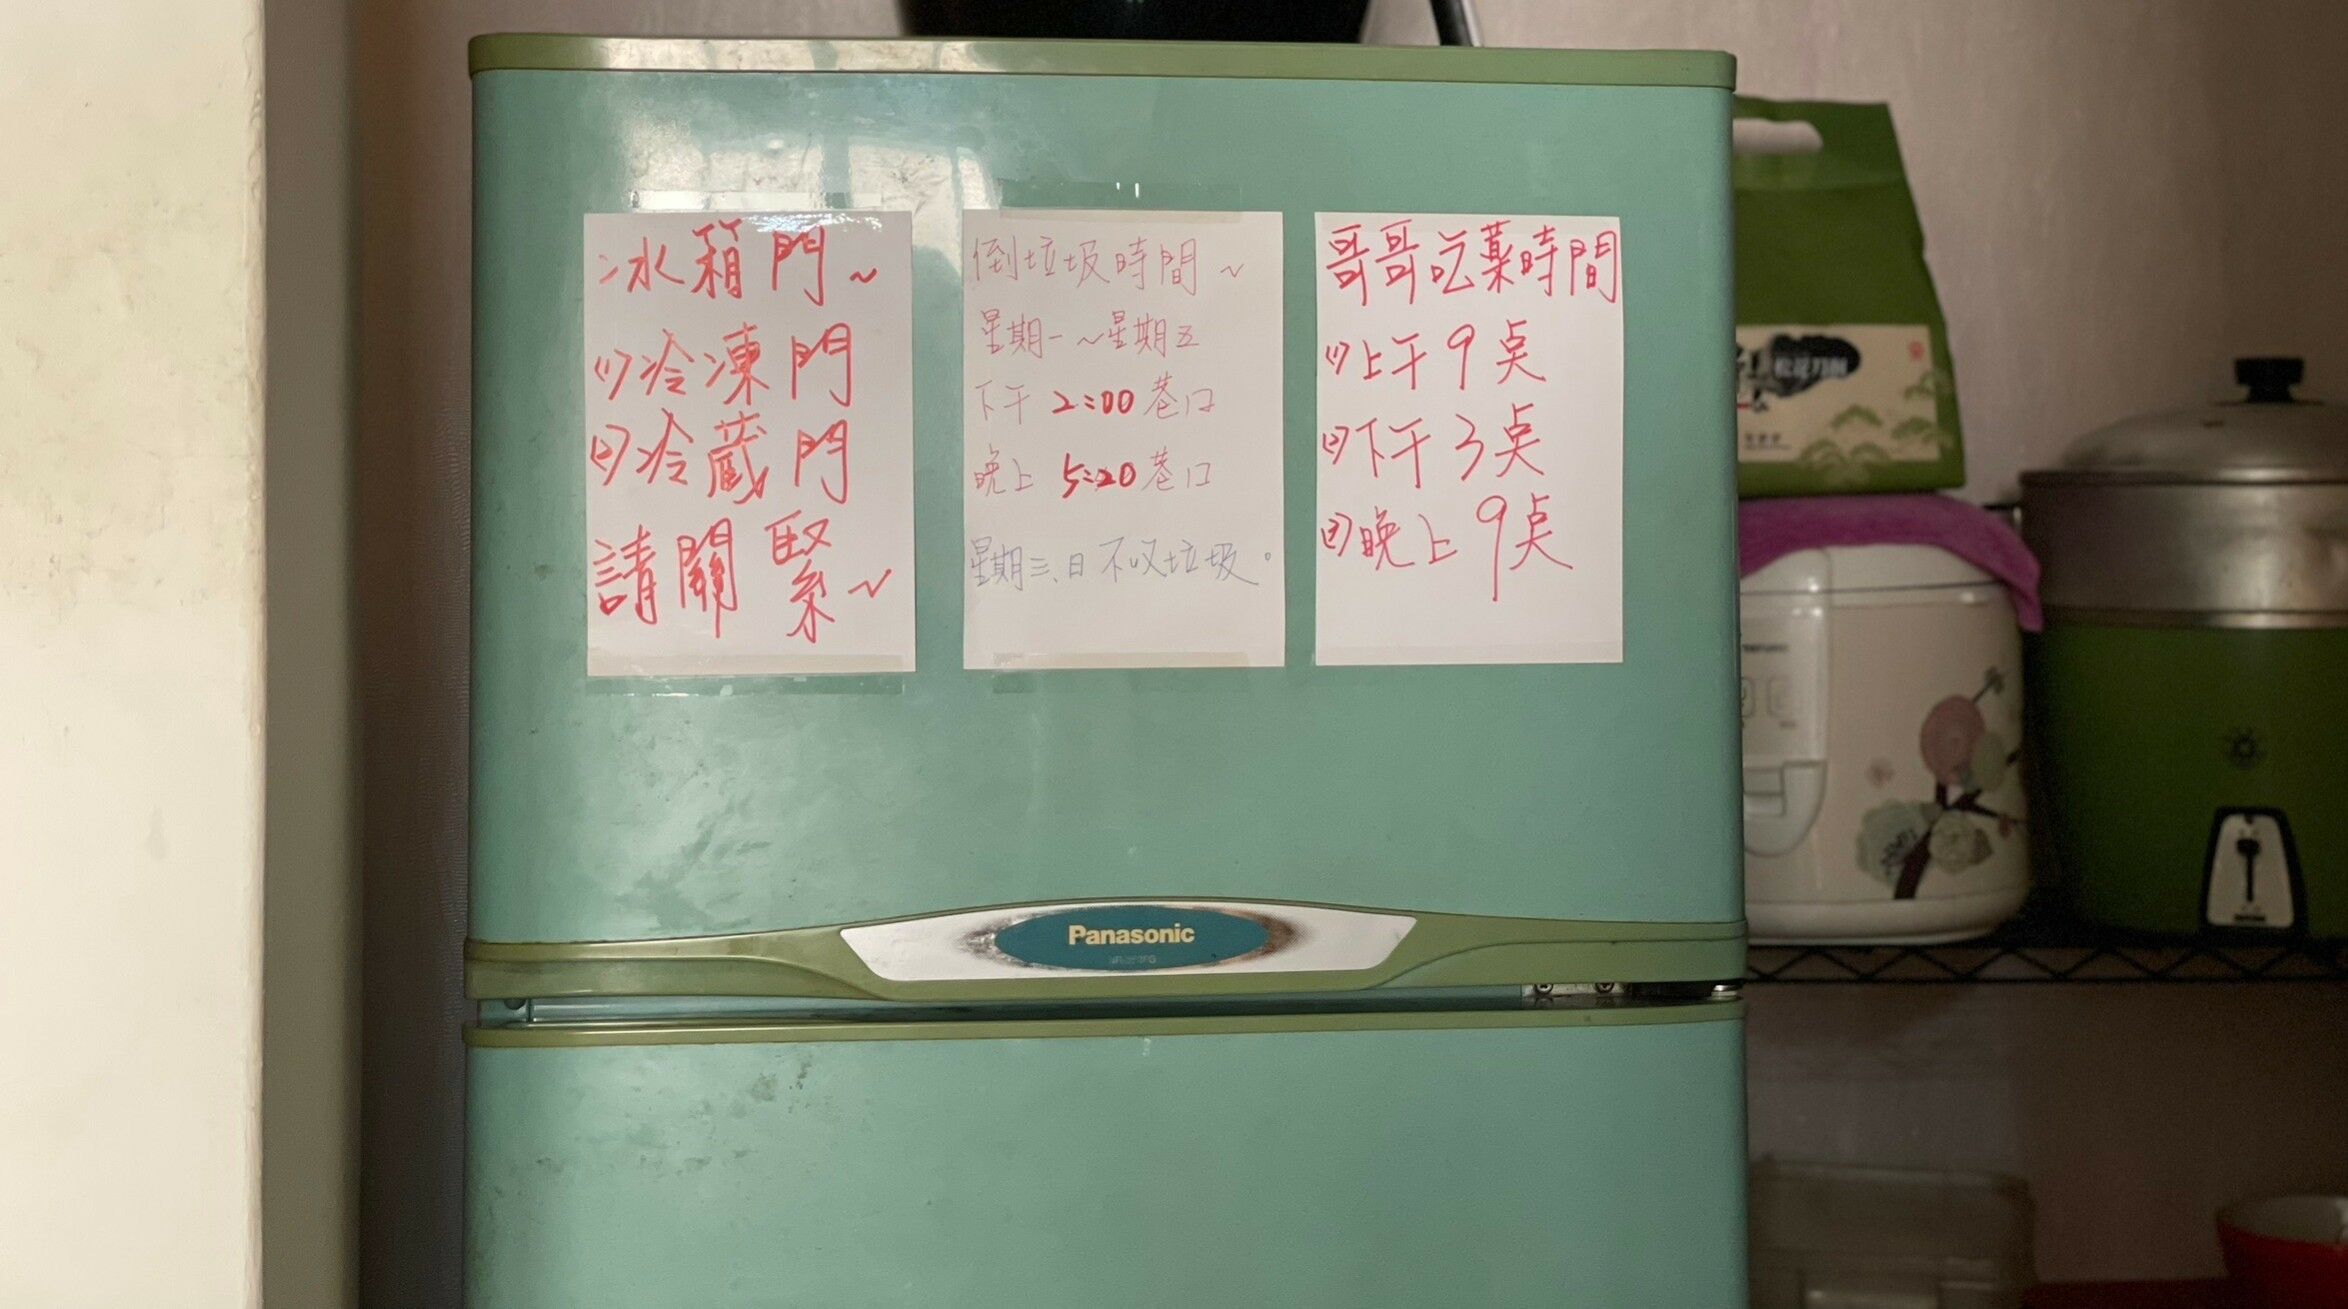 冰箱門~
(1)冷凍門
(2)冷藏門
請關緊~
倒垃圾時間~
星期一~星期五
下午 2:00 巷口
晚上 5:20 巷口
星期三、日不收垃圾。
哥哥吃藥時間
(1)上午9点
(2)下午3点
(3)晚上9点
Panasonic